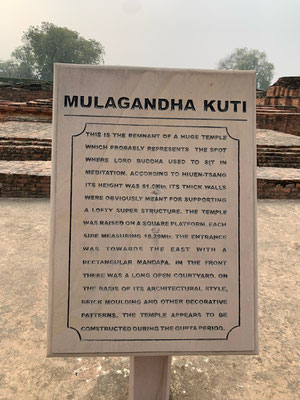 MULAGANDHA KUTI
THIS IS THE REMNANT OF A HUGE TEMPLE
WHICH PROBABLY REPRESENTS THE SPOT
WHERE LORD BUDDHA USED TO SIT IN
MEDITATION. ACCORDING TO HIUEN-TSANG
ITS HEIGHT WAS 61.0Mts. ITS THICK WALLS
WERE OBVIOUSLY MEANT FOR SUPPORTING
A LOFTY SUPER STRUCTURE. THE TEMPLE
WAS RAISED ON A SQUARE PLATFORM, EACH
SIDE MEASURING 18.29Mts. THE ENTRANCE
WAS TOWARDS THE EAST WITH A
RECTANGULAR MANDAPA. IN THE FRONT
THERE WAS A LONG OPEN COURTYARD. ON
THE BASIS OF ITS ARCHITECTURAL STYLE,
BRICK MOULDING AND OTHER DECORATIVE
PATTERNS, THE TEMPLE APPEARS TO BE
CONSTRUCTED DURING THE GUPTA PERIOD.